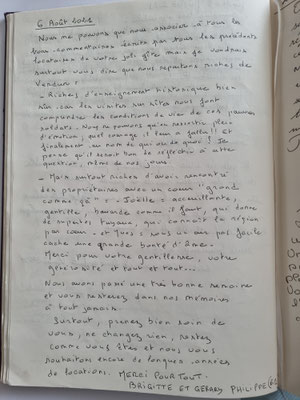 6 Août 2021
Nous ne pouvons que nous associer à tous les
bons commentaires écrits par tous les précédents
locataires de votre joli gîte mais je voudrais
surtout vous dire que nous repartons riches de
Verdun !
- Riches d'enseignement historique bien
sûr car les visites sur sites nous font
comprendre les conditions de vie de ces pauvres
soldats. Nous ne pouvons qu'en ressentir plein
d'émotion, quel courage il leur a fallu !! et
finalement au nom de qui ou de quoi ? Je
pense qu'il serait bon de réfléchir à cette
question, même de nos jours.
- Mais surtout riches d'avoir rencontré
des propriétaires avec un coeur "grand
comme ça" : - Joëlle : accueillante,
gentille, bavarde comme il faut, qui donne
de superbes tuyaux, qui connaît la région
par coeur - et Yves : sous un air pas facile
cache une grande bonté d'âme -
Merci pour votre gentillesse, votre
générosité et tout et tout...
Nous avons passé une très bonne semaine
et vous resterez dans nos mémoires
à tout jamais.
Surtout, prenez bien soin de
vous, ne changez rien, restez
comme vous êtes et nous vous
souhaitons encore de longues années
de locations. MERCI POUR TOUT -
BRIGITTE ET GERARD PHILIPPE